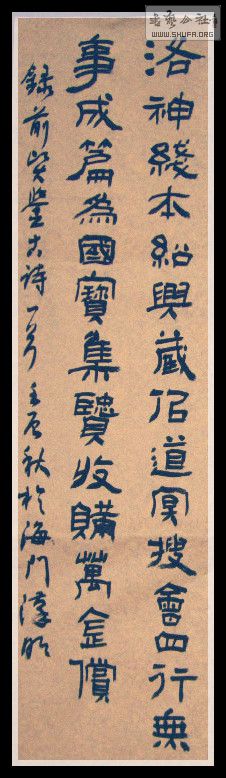 洛神綫本紹興藏佀道冥搜會四行無
事成篇為國寶集賢收購萬金償
錄前賢鑒古詩一首壬辰秋於海門
書藝公社
WWW.SHUFA.ORG